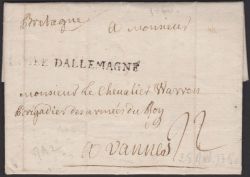 Bretagne
a Monsieur
D'ALLEMAGNE
Monsieur Le Chevalier Warron
Brigadier des armées du Roy
a Vannes
22